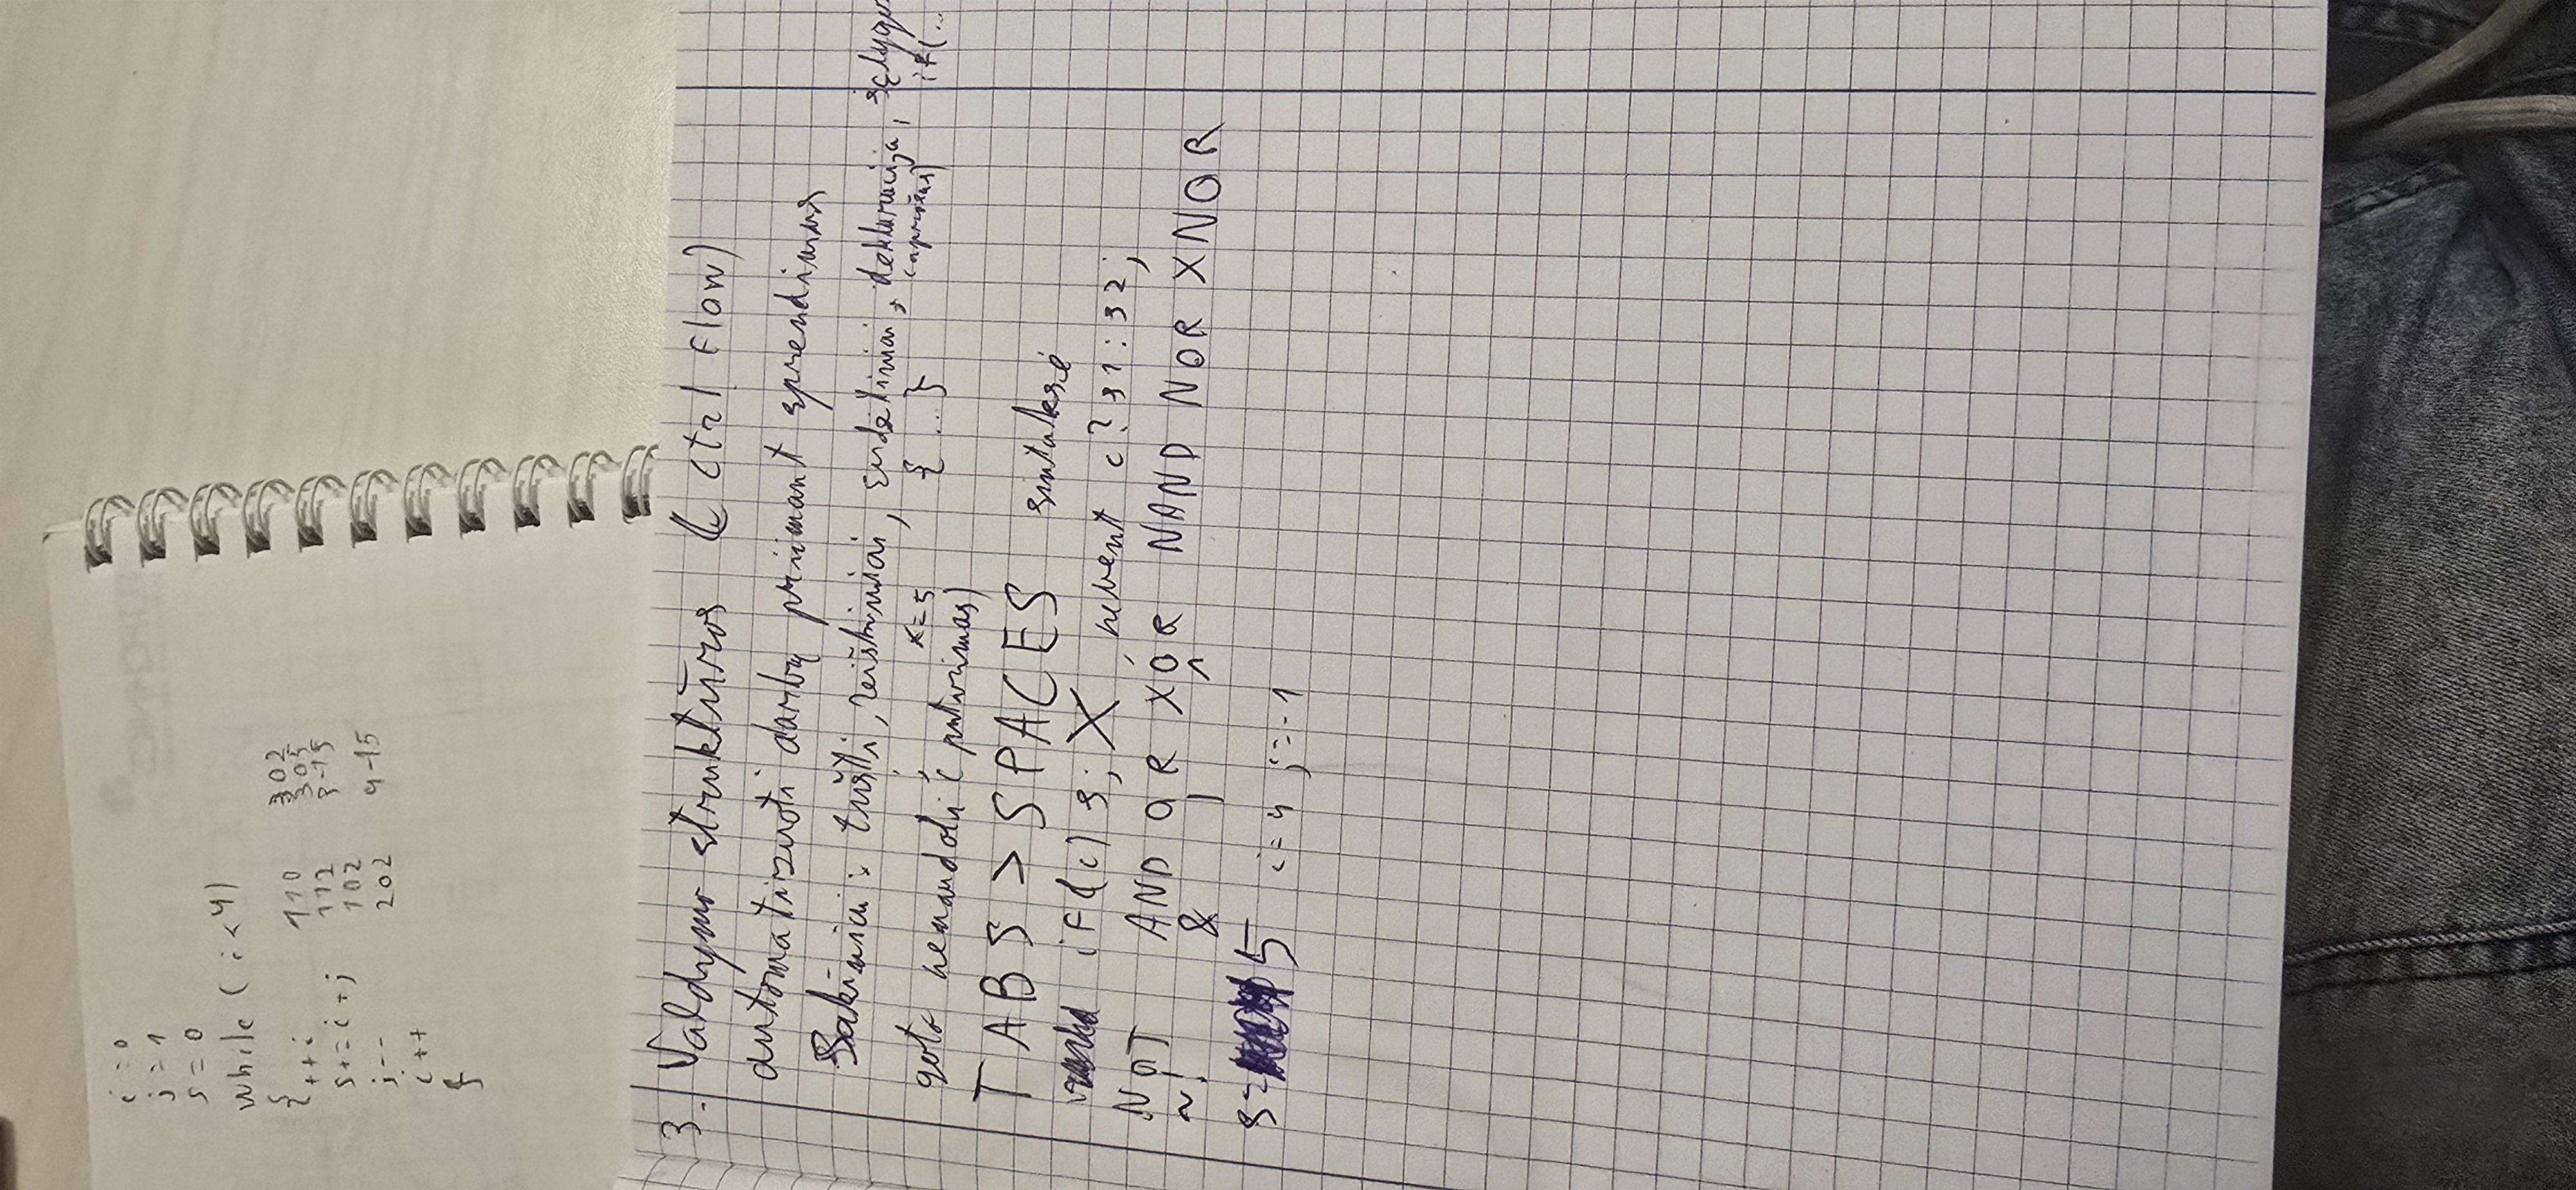 i = 0
j = 1
s = 0
while ( i < 4)
{
++i 110 302
s+= i + j 112 305
j-- 102 3-15
i++ 202 4-15
}
3. Valdymo struktūros ( Ctrl Flow)
automatizuoti darbą priimant sprendimus
Sakiniai: tušti, reiškiniai, sudėtiniai, deklaracija, sąlygos
; x=5 { .. } (aprašas) if(..
goto nenaudoti (patarimas)
TABS > SPACES sintaksė
if(c) s; X, nebent c? s1 : s2;
NOT AND OR XOR NAND NOR XNOR
~! & | ^
s= 5 i=4 j=-1